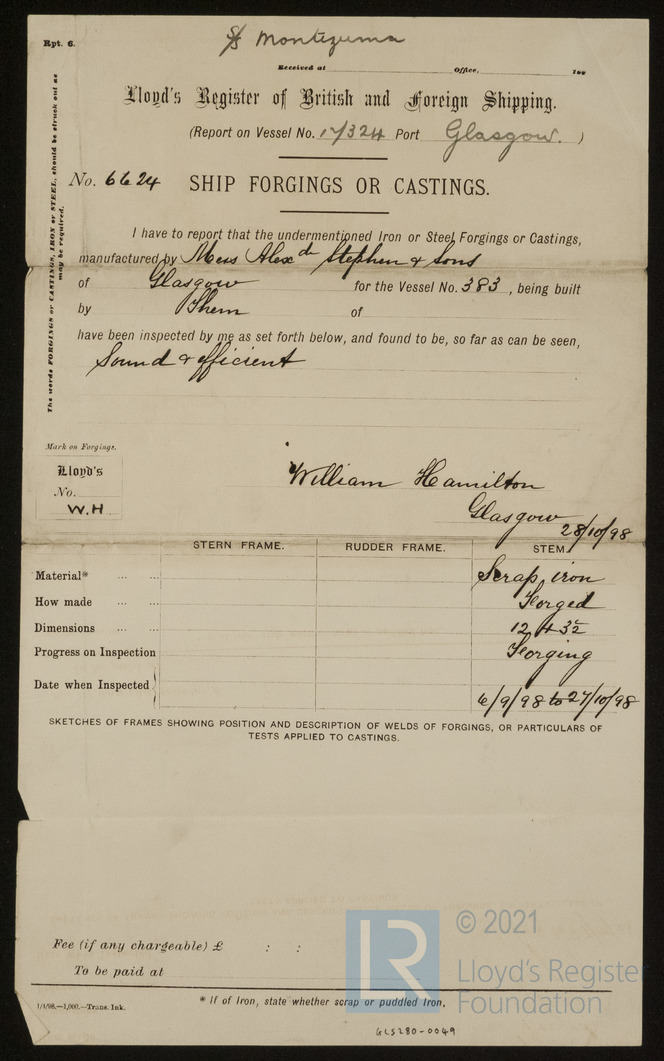 Rpt. 6.
S/S Montezuma
Received at Office, 189
Lloyd's Register of British and Foreign Shipping.
(Report on Vessel No. 17324 Port Glasgow. )
No. 6624 SHIP FORGINGS OR CASTINGS.
The words FORGINGS or CASTINGS, IRON or STEEL, should be struck out as
may be required.
I have to report that the undermentioned Iron or Steel Forgings or Castings,
manufactured by Mess Alexdr Stephen & Sons
of Glasgow for the Vessel No. 383, being built
by Them of
have been inspected by me as set forth below, and found to be, so far as can be seen,
Sound & efficient
Mark on Forgings.
Lloyd's
No.
W.H
William Hamilton
Glasgow 28/10/98
STERN FRAME. RUDDER FRAME. STEM.
Material* ... ... Scrap iron
How made ... ... Forged
Dimensions ... ... 12
Progress on Inspection Forging
Date when Inspected 6/9/98 to 27/10/98
SKETCHES OF FRAMES SHOWING POSITION AND DESCRIPTION OF WELDS OF FORGINGS, OR PARTICULARS OF
TESTS APPLIED TO CASTINGS.
Fee (if any chargeable) £ : :
To be paid at
* If of Iron, state whether scrap or puddled Iron.
1/1/98.—1,000.—Trans. Ink.
GLS280-0049
LR
© 2021
Lloyd's Registe
Foundation